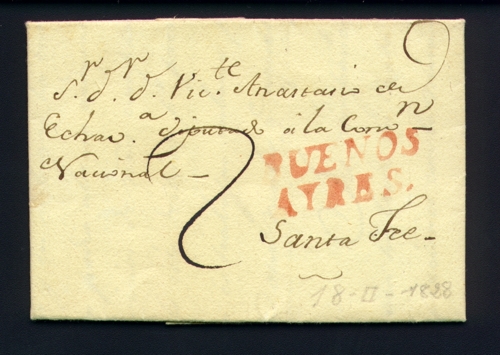 S.r D.r D. Vic.te Anastacio de
Echav.a Diputado â la Con.n
Nacional_
2
BUENOS
AYRES.
Santa Fee_
18-II-1828